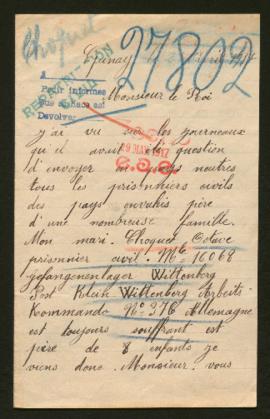 Choquet
27802
Epinay
Pedir informes
que enlace est
Devolver
Monsieur le Roi
J'ai vu sur les journeaux
qu'il avait été question
d'envoyer en pays neutres
tous les prisonniers civils
des pays envahis père
d'une nombreuse famille.
Mon mari. Choquet Octave
prisonnier civil. Mle 16068
gefangenenlager Wittenberg
Post Klein Wittenberg Arbeits
Kommando No 376 Allemagne
est toujours souffrant est
père de 8 enfants je
viens donc Monsieur. vous